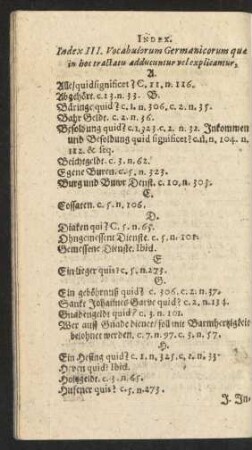 INDEX.
Index III. Vocabulorum Germanicorum quæ
in hoc tractatu adducuntur vel explicantur,
A.
Alle/ quid significet? C. 11. n. 126.
Abgehört. c. 13. n. 33. B.
Bäringe quid? c. 1. n. 306. c. 2. n. 35.
Bahr Geldt. c. 2. n. 36.
Besoldung quid? c. 1. 323. c. 2. n. 32. Inkommen
und Besoldung quid significet? c. 11. n. 104. n.
112. & seq.
Beichtgeldt. c. 3. n. 62.
Egene Buren. c. 5. n. 323.
Burg und Buwr Denst. c. 10. n. 303.
C.
Cossaten. c. 5. n. 106.
D.
Diaken qui? C. 5. n. 65.
Ohngemessene Dienste. c. 5. n. 101.
Gemessene Dienste. Ibid.
E
Ein lieger quis? c. 5. n. 273.
G.
Ein gebührniß quid? c. 306. c. 2. n. 37.
Sanct Johannes Garve quid? c. 2. n. 134.
Gnadengeldt quid? c. 3. n. 101.
Wer auff Gnade dienet/ soll mit Barmhertzigkeit
belohnet werden. c. 7. n. 97. c. 3. n. 57.
H.
Ein Hefing quid? c. 1. n. 325. c. 2. n. 33.
Heven quid? Ibid.
Holtzgeldt. c. 3. n. 65.
Hufener quis? c. 5. n. 273.
J. In-